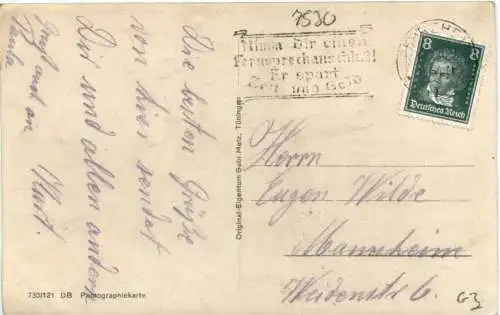 7530
Nimm Dir einen
Fernsprechanschluß!
Er spart
Zeit und Geld
8 8
Deutsches Reich
Die besten Grüße
von hier sendet
Dir und allen andern
Kurt.
Gruß auch an
Paula
Original-Eigentum Gebr. Metz, Tübingen
Herrn
Eugen Wilde
Mannheim
Weidenstr 6.
733/121 DB Photographiekarte